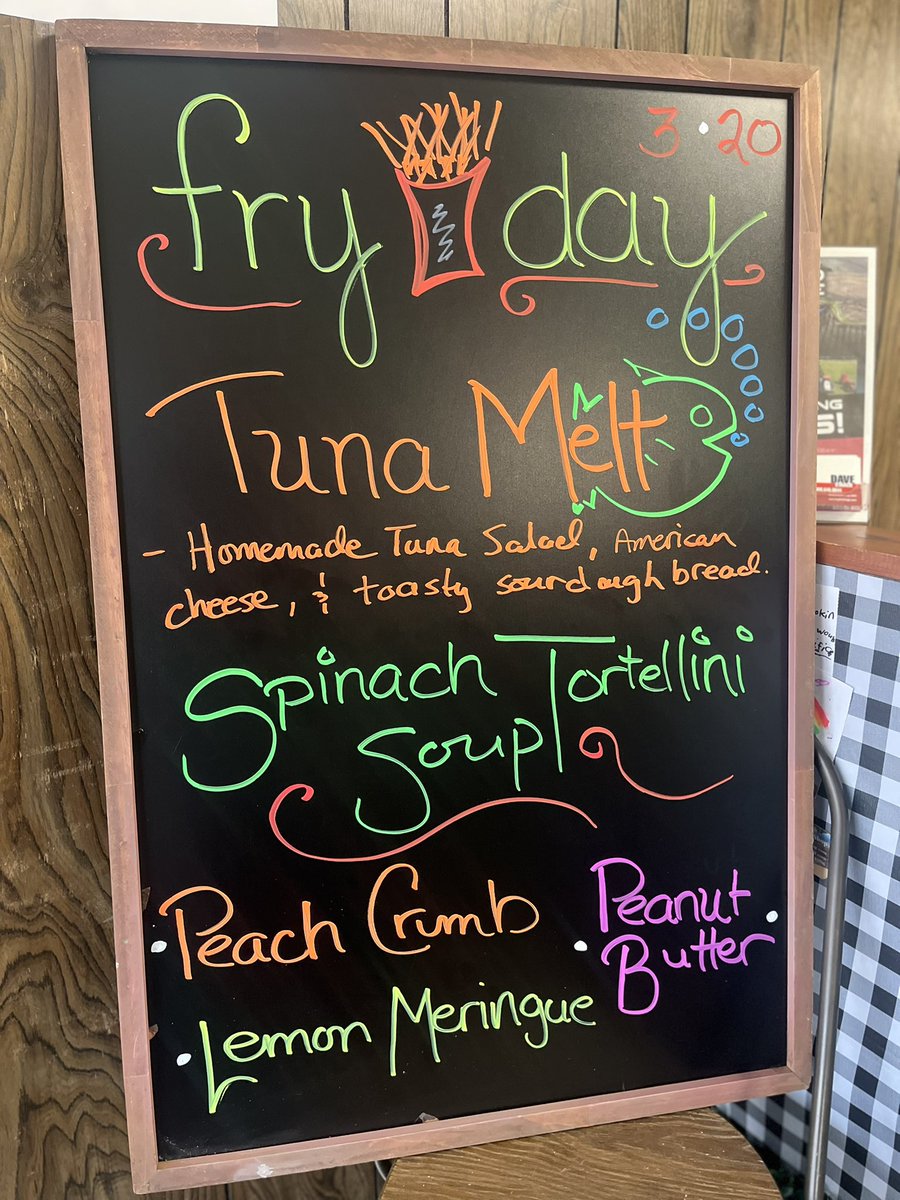 3·20
fry day
Tuna Melt
- Homemade Tuna Salad, American
cheese, & toasty sourdough bread.
Spinach Tortellini
Soup
· Peach Crumb
· Peanut
Butter ·
· Lemon Meringue
NG
S!
DAVE